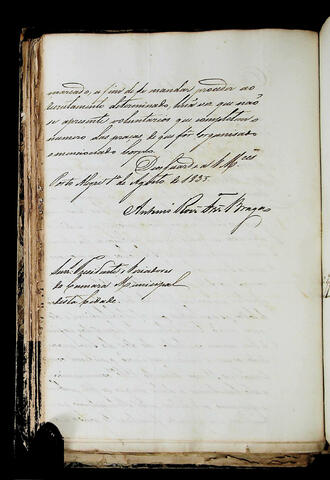 marcado, a fim de se mandar proceder ao
recrutamento determinado, huã vez que naõ
se apresente voluntarios que completem o
numero das praças, de que for organisado
o mencionado Corpo.
Deos Guarde a V Mces
Porto Alegre 1º de Agosto de 1835
Antonio Roiz Frz Braga
Snrs. Presidente e Vereadores
da Camara Municipal
desta Cidade